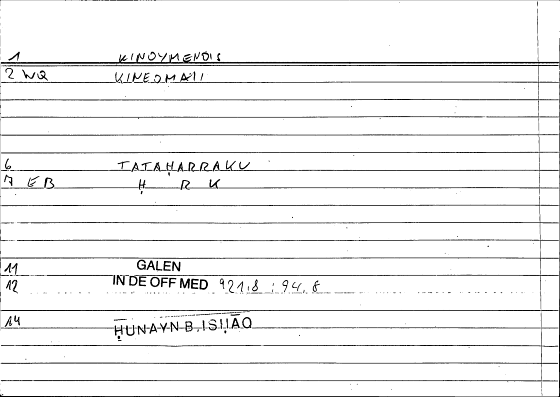 1 KINOYMENOIS
2 WQ KINEOMAII
6 TATAḤARRAKU
7 EB Ḥ R K
11 GALEN
12 IN DE OFF MED 921,8 : 94,8
14 ḤUNAYN B. ISḤĀQ